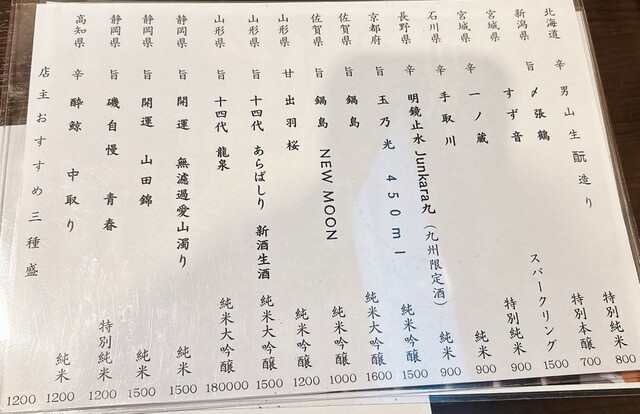 北海道 辛 男山生酛造り 純米 800
新潟県 旨 〆張鶴 特別本醸 700
宮城県 すず音 スパークリング 1500
宮城県 辛 一ノ蔵 特別純米 900
石川県 辛 手取川 純米 900
長野県 辛 明鏡止水 Junkara九 (九州限定酒) 純米 900
京都府 旨 玉乃光 450ml 純米吟醸 1500
佐賀県 旨 鍋島 純米大吟醸 1600
佐賀県 旨 鍋島 NEW MOON 純米吟醸 1000
山形県 甘 出羽桜 純米吟醸 1200
山形県 旨 十四代 あらばしり 新酒生酒 純米大吟醸 1500
山形県 旨 十四代 龍泉 純米大吟醸 180000
静岡県 旨 開運 無濾過愛山濁り 純米 1500
静岡県 旨 開運 山田錦 純米 1500
静岡県 旨 磯自慢 青春 特別純米 1200
高知県 辛 酔鯨 中取り 純米 1200
店主おすすめ三種盛 1200